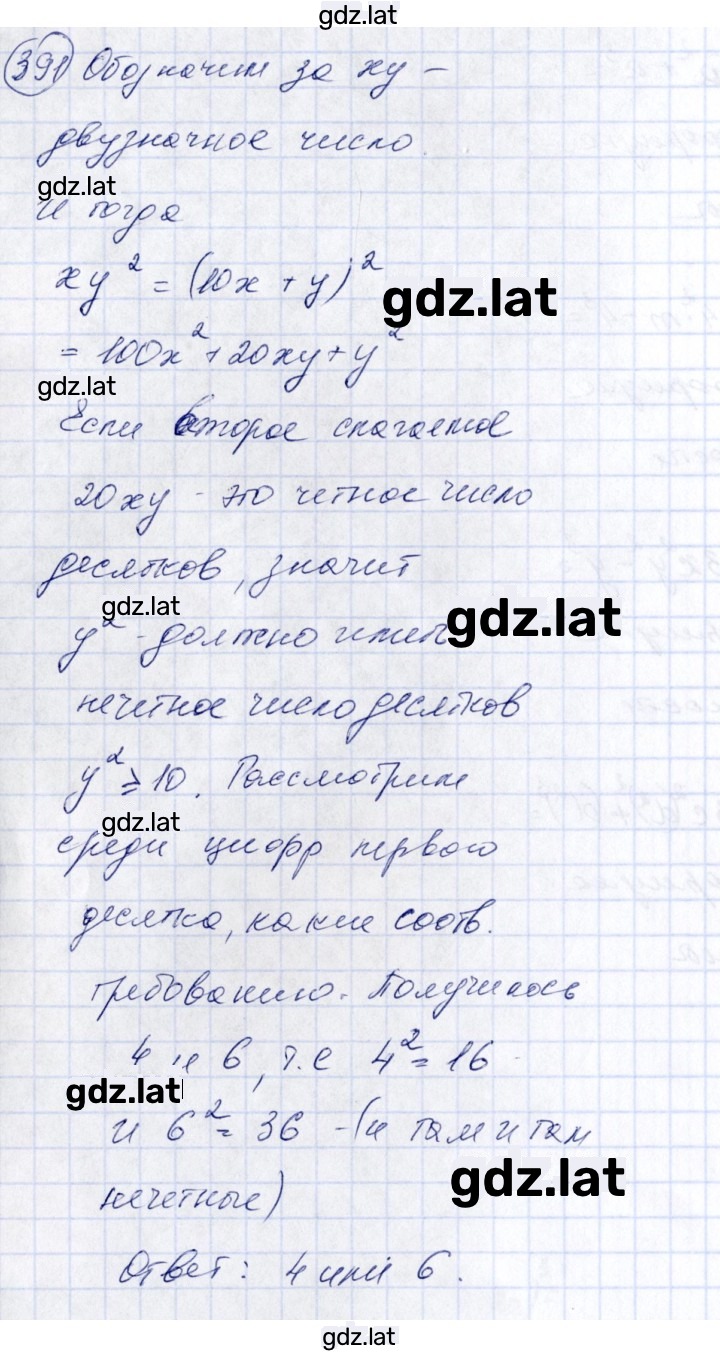 gdz.lat
391 Обозначим за xy –
двузначное число.
gdz.lat
И тогда
xy² = (10x + y)²
gdz.lat
= 100x² + 20xy + y²
gdz.lat
Если второе слагаемое
20xy - это четное число
десятков, значит
gdz.lat
y² - должно иметь
gdz.lat
нечетное число десятков
y² ≥ 10. Рассмотрим
gdz.lat
среди цифр первого
десятка, какие соотв.
требованию. Получилось
4 и 6, т.е 4² = 16
gdz.lat
и 6² = 36 - (и там и там
gdz.lat
нечетные)
Ответ: 4 или 6.
gdz.lat